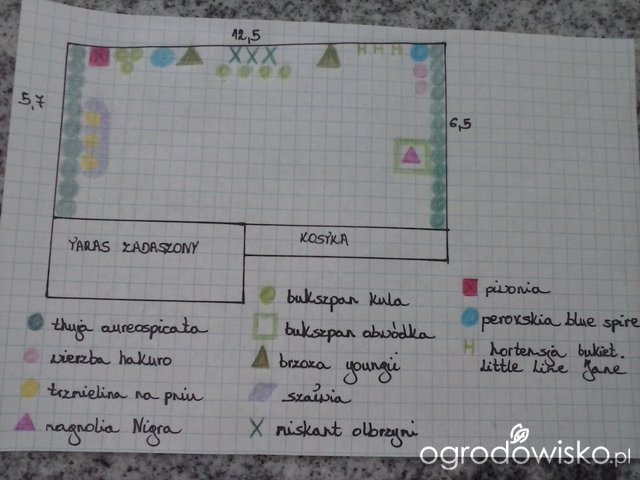 12,5
5,7
6,5
TARAS ZADASZONY
KOSTKA
thuja aureospicata
wierzba hakuro
trzmielina na pniu
magnolia Nigra
bukszpan kula
bukszpan obwódka
brzoza youngii
szałwia
miskant olbrzymi
piwonia
perovskia blue spire
hortensja bukiet.
Little Lime Jane
ogrodowisko.pl